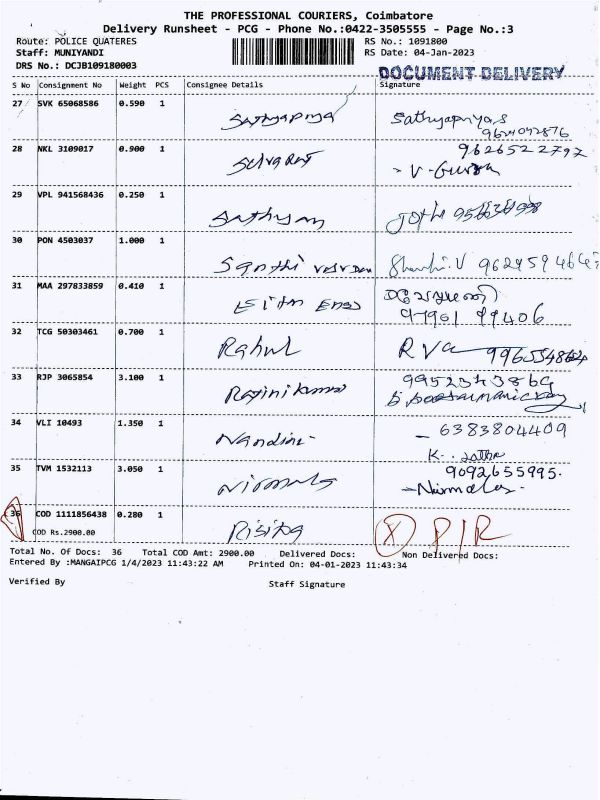 THE PROFESSIONAL COURIERS, Coimbatore
Delivery Runsheet - PCG - Phone No.:0422-3505555 - Page No.:3
Route: POLICE QUATERES
RS No.: 1091800
Staff: MUNIYANDI
RS Date: 04-Jan-2023
DRS No.: DCJB109180003
DOCUMENT DELIVERY
S No Consignment No Weight PCS Consignee Details Signature
27 SVK 65068586 0.590 1 Sathyapriya Sathyapriya.S
28 NKL 3109017 0.900 1 Selvaraj 9626522797
29 VPL 941568436 0.250 1 Sathyan
30 PON 4503037 1.000 1 Santhi
31 MAA 297833859 0.410 1
97901 99406
32 TCG 50303461 0.700 1 Rahul
33 RJP 3065854 3.100 1 Rajinikumar
34 VLI 10493 1.350 1 Nandini - 6383804409
35 TVM 1532113 3.050 1 Nirmala 9092655995.
36 COD 1111856438 0.280 1 Rising
COD Rs.2900.00
Total No. Of Docs: 36 Total COD Amt: 2900.00 Delivered Docs: Non Delivered Docs:
Entered By :MANGAIPCG 1/4/2023 11:43:22 AM Printed On: 04-01-2023 11:43:34
Verified By Staff Signature